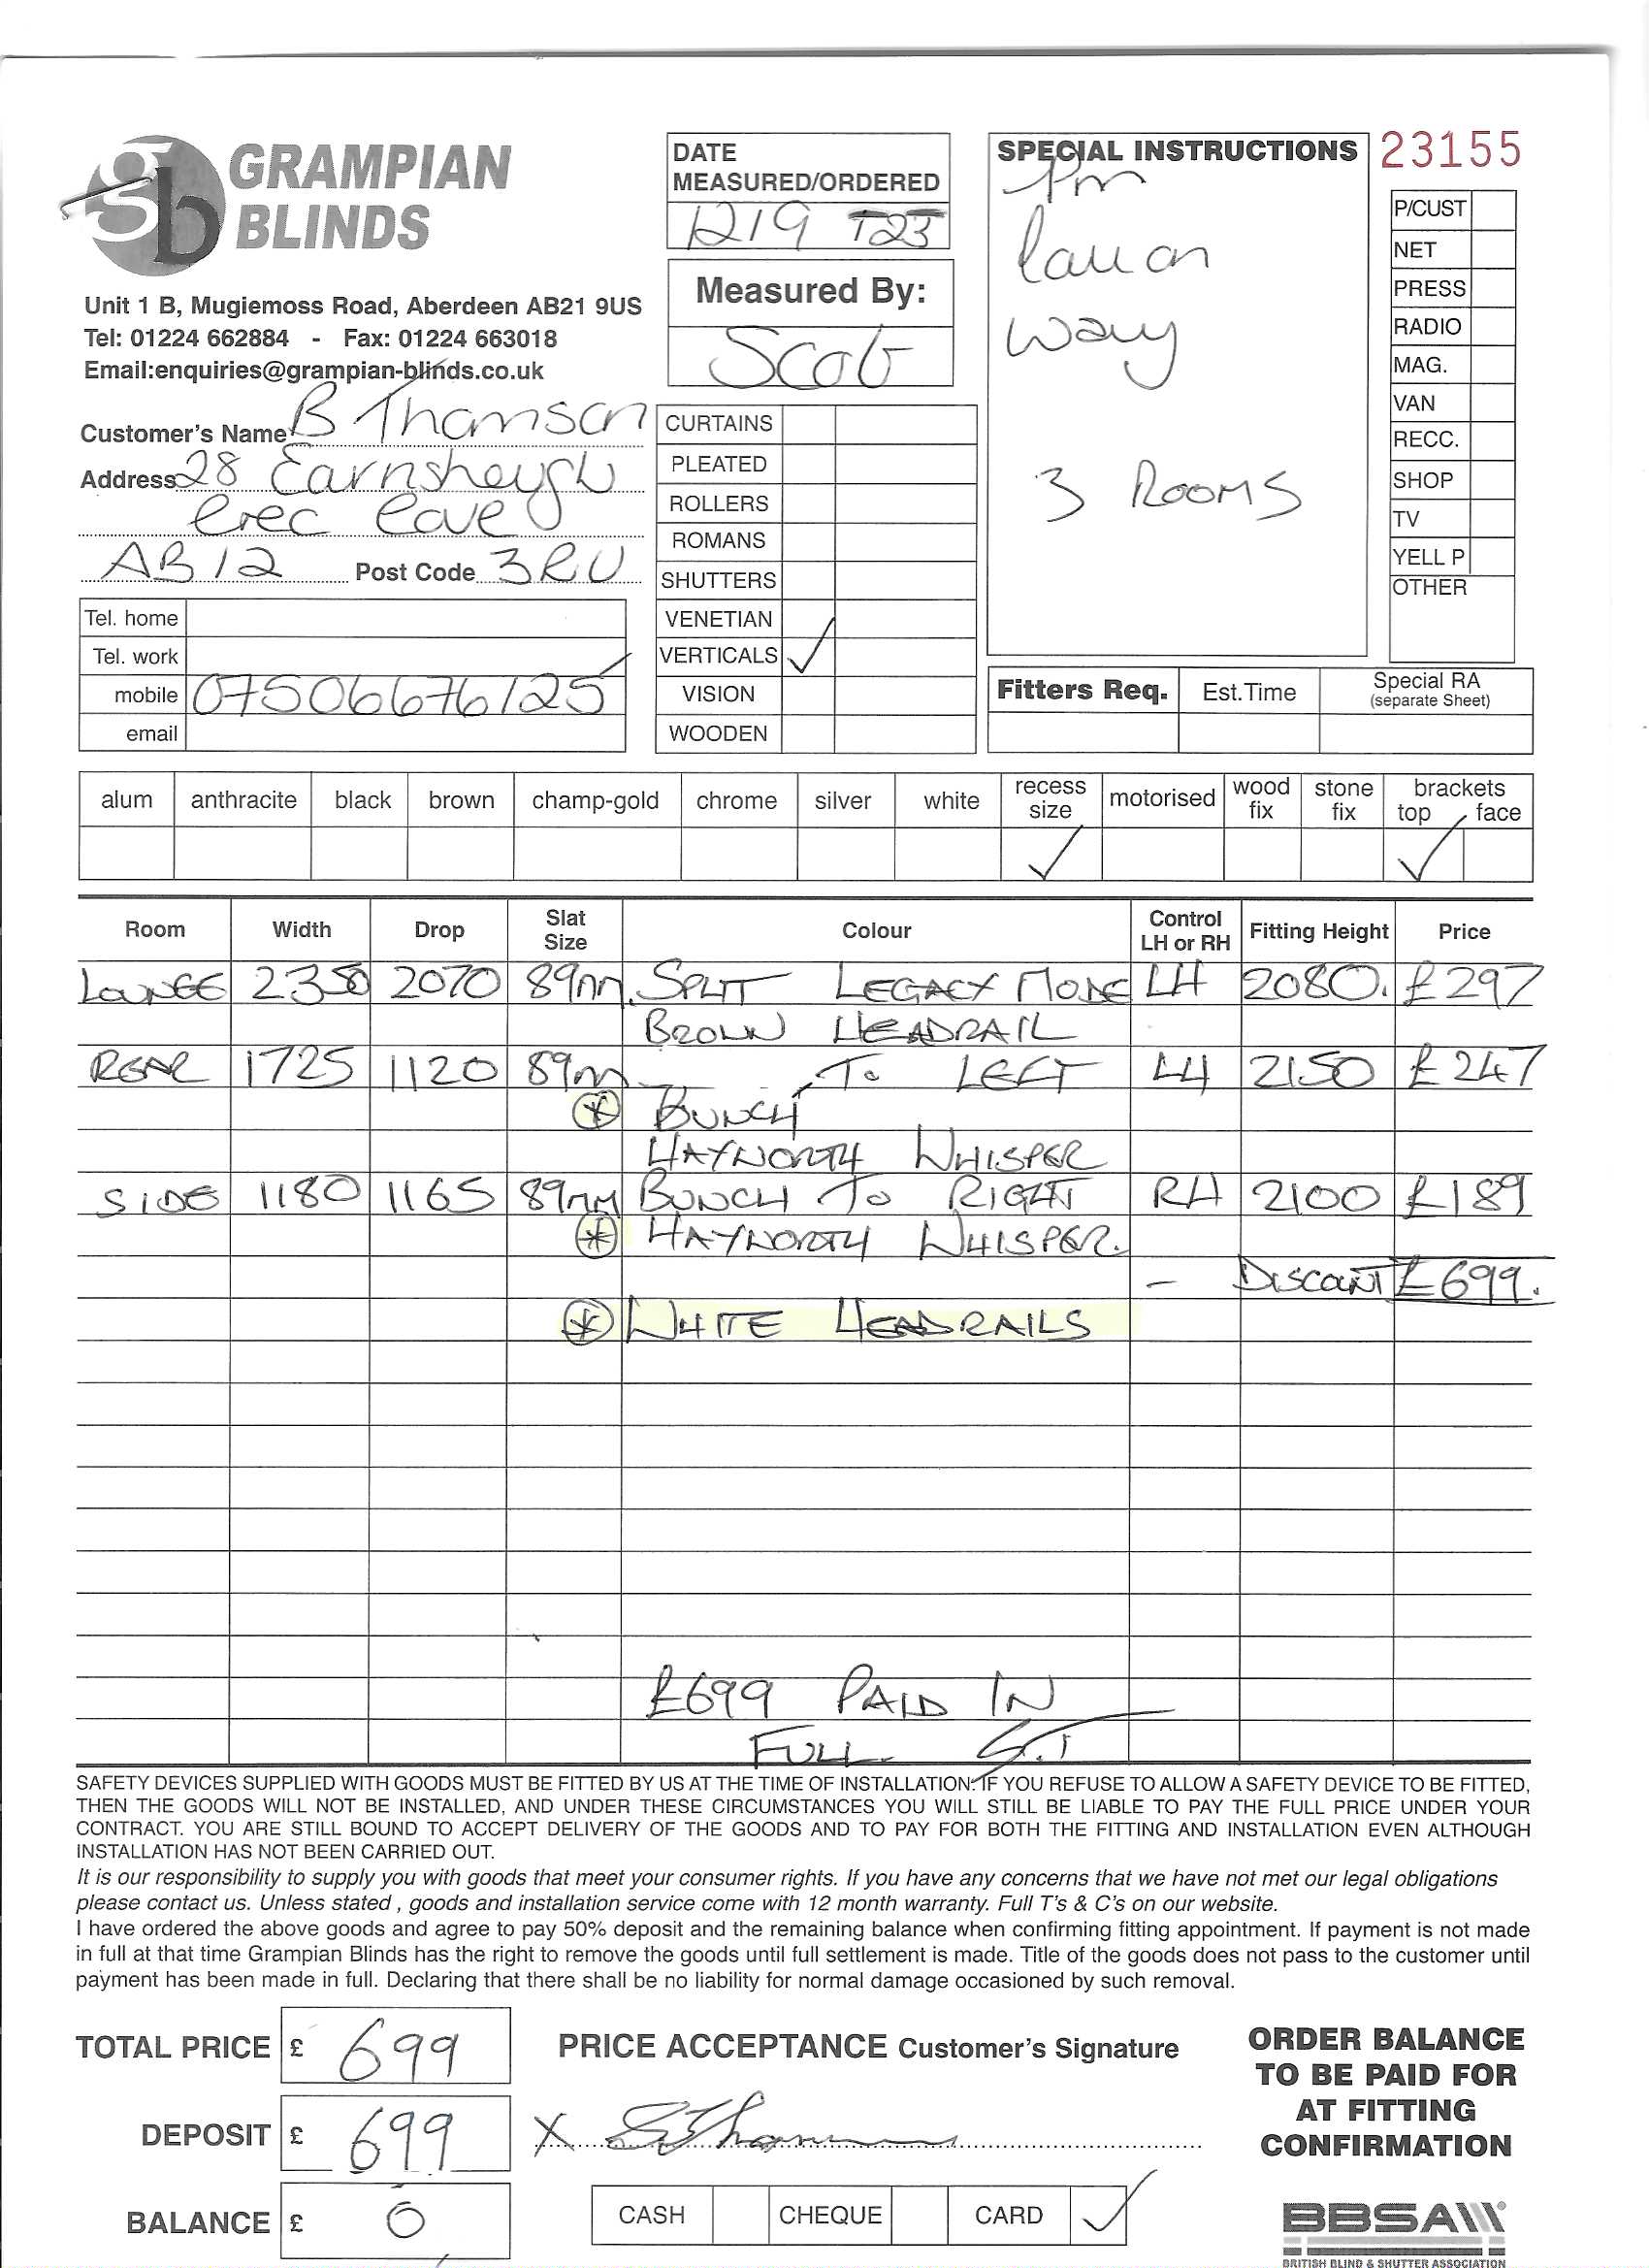 gb GRAMPIAN
BLINDS
Unit 1 B, Mugiemoss Road, Aberdeen AB21 9US
Tel: 01224 662884 - Fax: 01224 663018
Email:enquiries@grampian-blinds.co.uk
DATE
MEASURED/ORDERED
1219 T23
Measured By:
Scot
SPECIAL INSTRUCTIONS
Pm
Call on
way
3 ROOMS
23155
P/CUST
NET
PRESS
RADIO
MAG.
VAN
RECC.
SHOP
TV
YELL P
OTHER
Customer's Name B Thomson
Address 28 Earnsheugh
Crec Cove
AB12 Post Code 3RU
Tel. home
Tel. work
mobile 07506676125
email
CURTAINS
PLEATED
ROLLERS
ROMANS
SHUTTERS
VENETIAN
VERTICALS ✓
VISION
WOODEN
Fitters Req. Est.Time Special RA
(separate Sheet)
alum anthracite black brown champ-gold chrome silver white recess size motorised wood fix stone fix brackets top face
✓ ✓
Room Width Drop Slat Size Colour Control LH or RH Fitting Height Price
LOUNGE 2350 2070 89mm SPLIT LEGACY MODE LH 2080. £297
BROWN HEADRAIL
REAR 1725 1120 89mm TO LEFT LH 2150 £247
* BUNCH
HAYWORTH WHISPER
SIDE 1180 1165 89mm BUNCH TO RIGHT RH 2100 £189
* HAYWORTH WHISPER.
- DISCOUNT £699.
* WHITE HEADRAILS
£699 PAID IN
FULL S.T
SAFETY DEVICES SUPPLIED WITH GOODS MUST BE FITTED BY US AT THE TIME OF INSTALLATION. IF YOU REFUSE TO ALLOW A SAFETY DEVICE TO BE FITTED,
THEN THE GOODS WILL NOT BE INSTALLED, AND UNDER THESE CIRCUMSTANCES YOU WILL STILL BE LIABLE TO PAY THE FULL PRICE UNDER YOUR
CONTRACT. YOU ARE STILL BOUND TO ACCEPT DELIVERY OF THE GOODS AND TO PAY FOR BOTH THE FITTING AND INSTALLATION EVEN ALTHOUGH
INSTALLATION HAS NOT BEEN CARRIED OUT.
It is our responsibility to supply you with goods that meet your consumer rights. If you have any concerns that we have not met our legal obligations
please contact us. Unless stated , goods and installation service come with 12 month warranty. Full T's & C's on our website.
I have ordered the above goods and agree to pay 50% deposit and the remaining balance when confirming fitting appointment. If payment is not made
in full at that time Grampian Blinds has the right to remove the goods until full settlement is made. Title of the goods does not pass to the customer until
payment has been made in full. Declaring that there shall be no liability for normal damage occasioned by such removal.
TOTAL PRICE £ 699
DEPOSIT £ 699
BALANCE £ 0
PRICE ACCEPTANCE Customer's Signature
X
CASH CHEQUE CARD ✓
ORDER BALANCE
TO BE PAID FOR
AT FITTING
CONFIRMATION
BBSA
BRITISH BLIND & SHUTTER ASSOCIATION